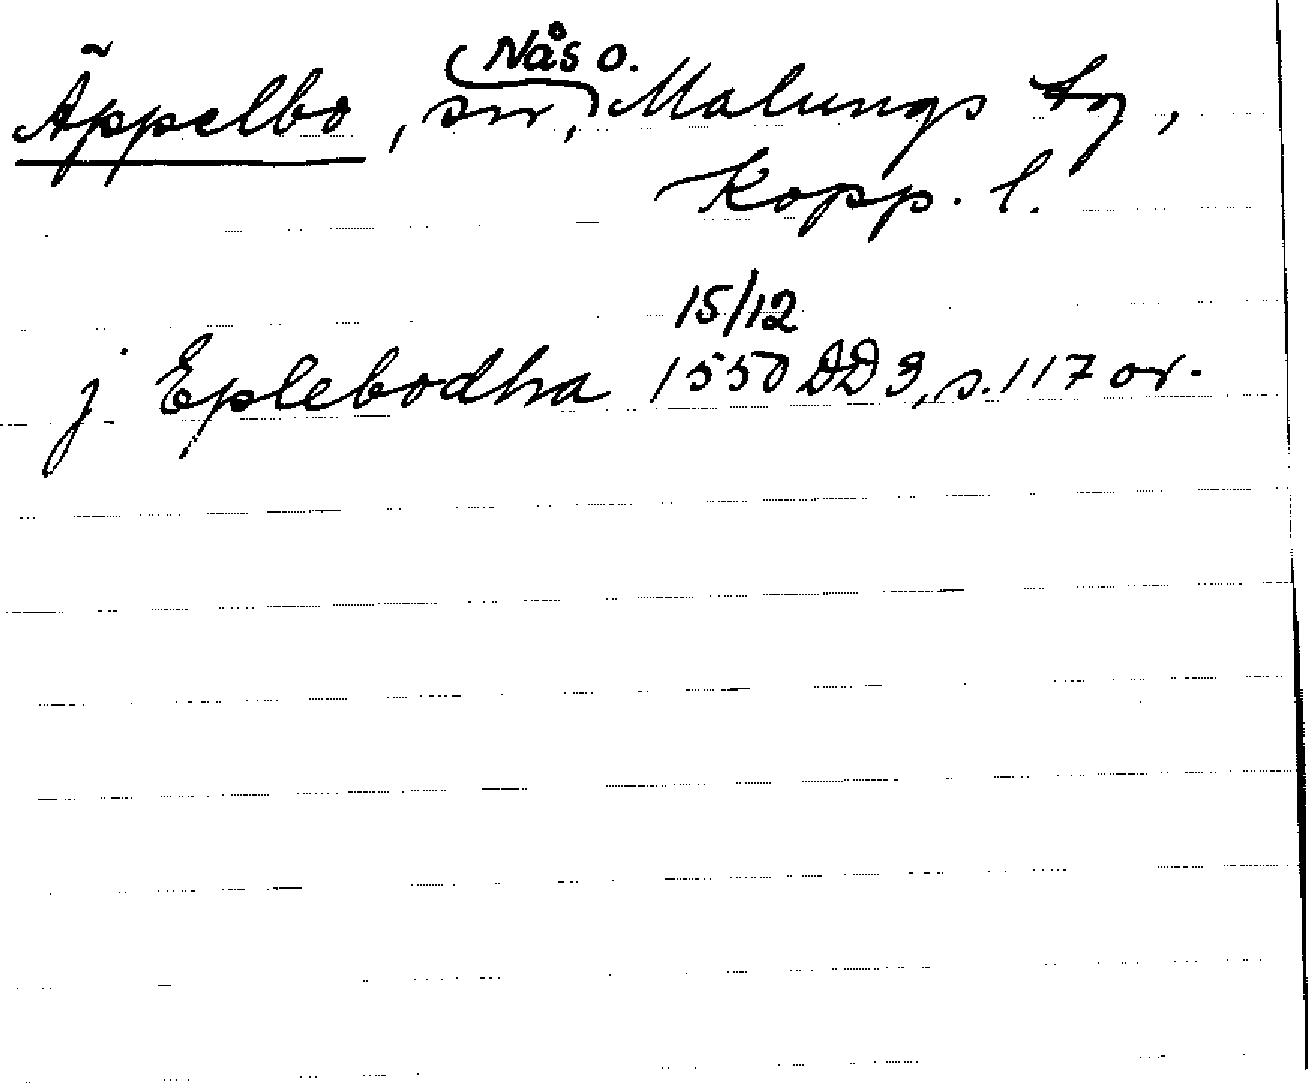 Nås o.
Äppelbo, sn, Malungs tg,
Kopp. l.
15/12
j Eplebodha 1550 DD 3, s. 117 or.